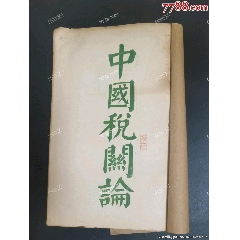 7788.com
中國稅關論